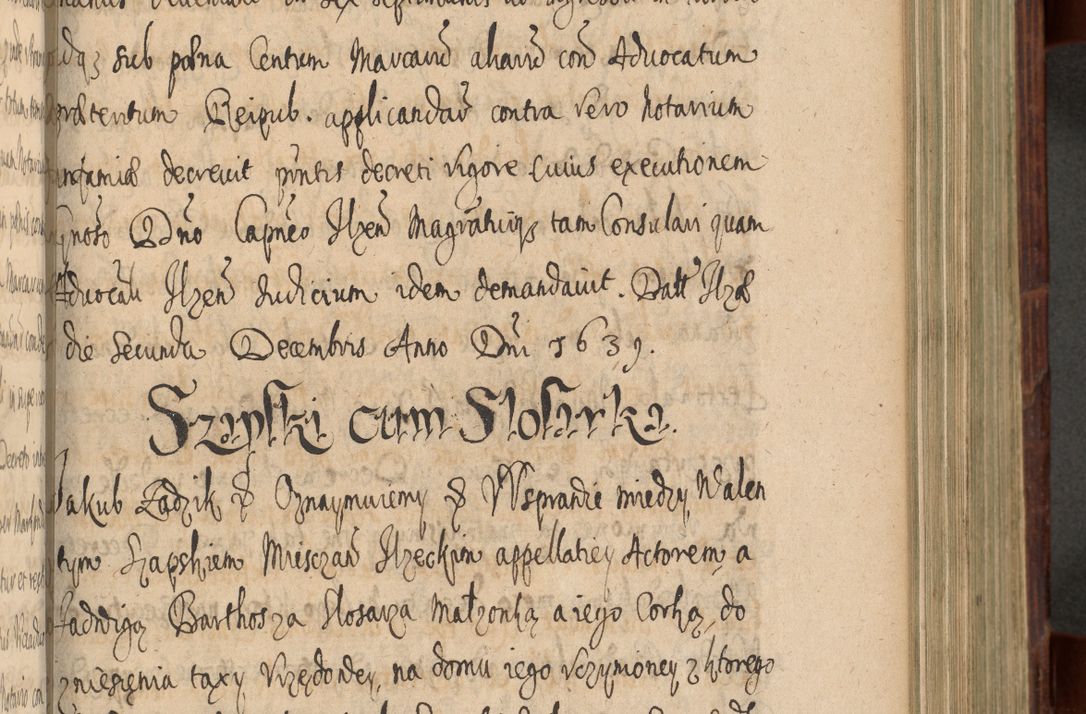 sub pœna Centum Marcarũ aliarũ coñ Advocatum
præteritum Reipub. applicandarũ contra vero Notarium
infamiæ decrevit pñtis decreti vigore Cuius executionem
Gnõso Dño Capnẽo Ilzeñ Magrãtuiq3 tam Consulari quam
Advocãli Ilzeñ Iudicium idem demandavit. Datt Ilzæ
die secunda Decembris Anno Dñi 1639.
Szapski cum Slosarka.
Jakub Ładzik &c Oznaymuiemy &c W Sprawie miedzy Walen
tym Szapskiem Miesczañ Ilzeckim appellatiey Actorem a
Jadwigą Barthosza Slosarza Małzonką a iego Corką, do
zniesięnia taxy Vrzędowey, na domu iego vczynioney z ktorego